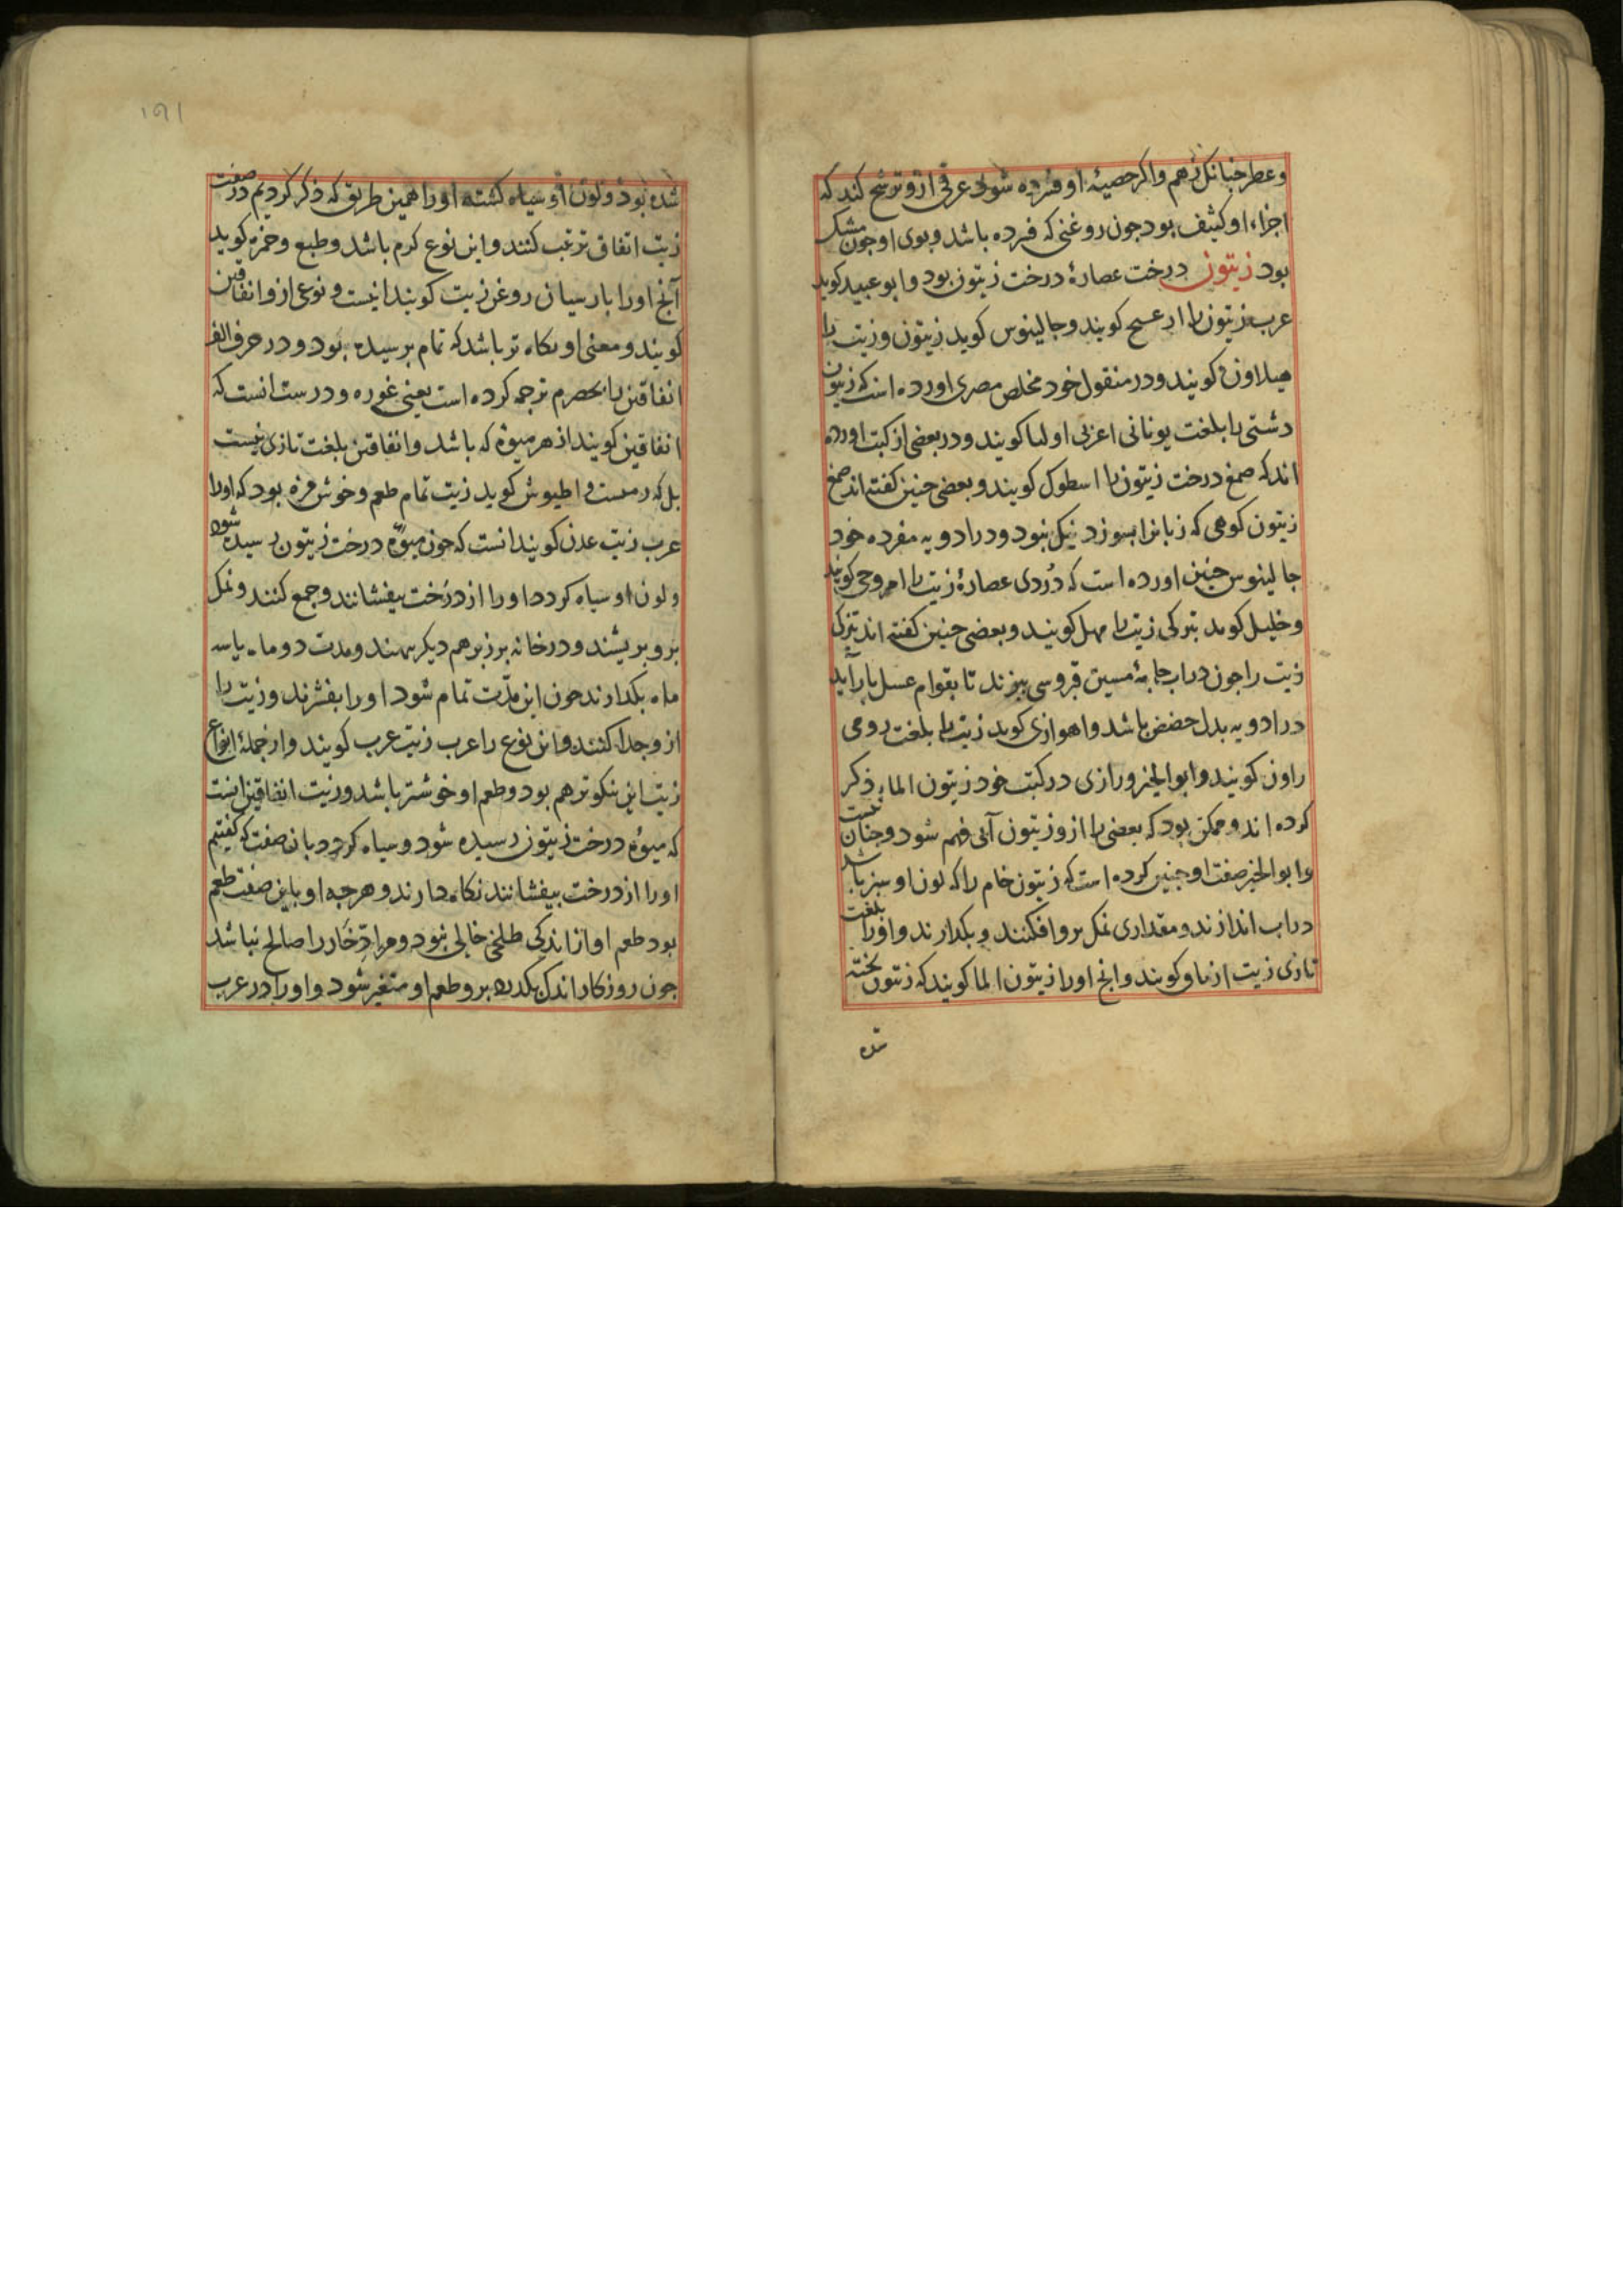 وعطر خبانکل زهم واکر حصیهٔ او فشرده شود عرقی ازو ترشح کند که
اجزاء او کثیف بود جون روغنی که فسرده باشد و بوی او جون مشک
بود زیتون درخت عصارهٔ درخت زیتون بود و ابو عبید کوید
عرب زیتون را کویند و جالینوس کوید زیتون و زیت را
هیلاون کویند و در منقول خود مخلص مصری اورده است که زیتون
دشتی را بلغت یونانی اولیا کویند و در بعضی از کتب اورده
اند که صمغ درخت زیتون را اسطوک کویند و بعضی جنین کفته اند صمغ
زیتون کوهی که زبانرا بسوزد نیک نبود و در ادویه مفرده خود
جالینوس جنین اورده است که دُردی عصارهٔ زیت را امروحی کویند
و خلیل کوید بترکی زیت را مهل کویند و بعضی جنین کفته اند
زیت را جون در اب جامهٔ مسین قبروسی بپزند تا بقوام عسل باز آید
در ادویه بدل حضض باشد و اهوازی کوید زیت را بلغت رومی
راون کویند و ابو الخیر و رازی در کتب خود زیتون الماء ذکر
کرده اند و ممکن بود که بعضی را ازو زیتون آبی فهم شود و جنان نیست
و ابو الخیر صفت او جنین کرده است که زیتون خام را که لون او سبز باشد
در اب اندازند و مقداری نمک برو افکنند و بکذارند و اورا بلغت
تازی زیت کویند و انج اورا زیتون الما کویند که زیتون پخته
شده
۱۵۱
شده بود و لون او سیاه کشته اورا همین طریق که ذکر کردیم در صفت
زیت اتفاق ترتیب کنند و این نوع کرم باشد و طبع و حمزه کوید
آنج اورا بارسیان روغن زیت کویند اینست و نوعی ازو انفاقین
کویند و معنی او نکاه تر باشد که تمام برسیده بود و در حرف الف
انفاقین را بحصرم ترجمه کرده است یعنی غوره و درست انست که
انفاقین کویند از هر میوهٔ که باشد و انفاقین بلغت تازی نیست
بل که رومیست و اطیوس کوید زیت تمام طعم و خوش مزه بود که اورا
عرب زیت عذن کویند انست که جون میوهٔ درخت زیتون رسیده شود
و لون او سیاه کردد اورا از درخت بیفشانند و جمع کنند و نمک
برو بریشند و در خانه بر زبر هم دیکر بنهند و مدت دو ماه یا سه
ماه بکذارند جون این مدّت تمام شود اورا بفشرند و زیت را
ازو جدا کنند و این نوع را عرب زیت عرب کویند و از جملهٔ انواع
زیت این نیکوتر هم بود و طعم او خوشتر باشد و زیت انفاقین انست
که میوهٔ درخت زیتون رسیده شود و سیاه کردد بان صفت که کفتیم
اورا از درخت بیفشانند نکاه دارند و هرجه او باین صفت طعم
بود طعم او از اندکی طلخی خالی نبود و مر ادّخار را صالح نباشد
جون روزکار اندک بکذرد برو طعم او متغیر شود و اورا در عرب